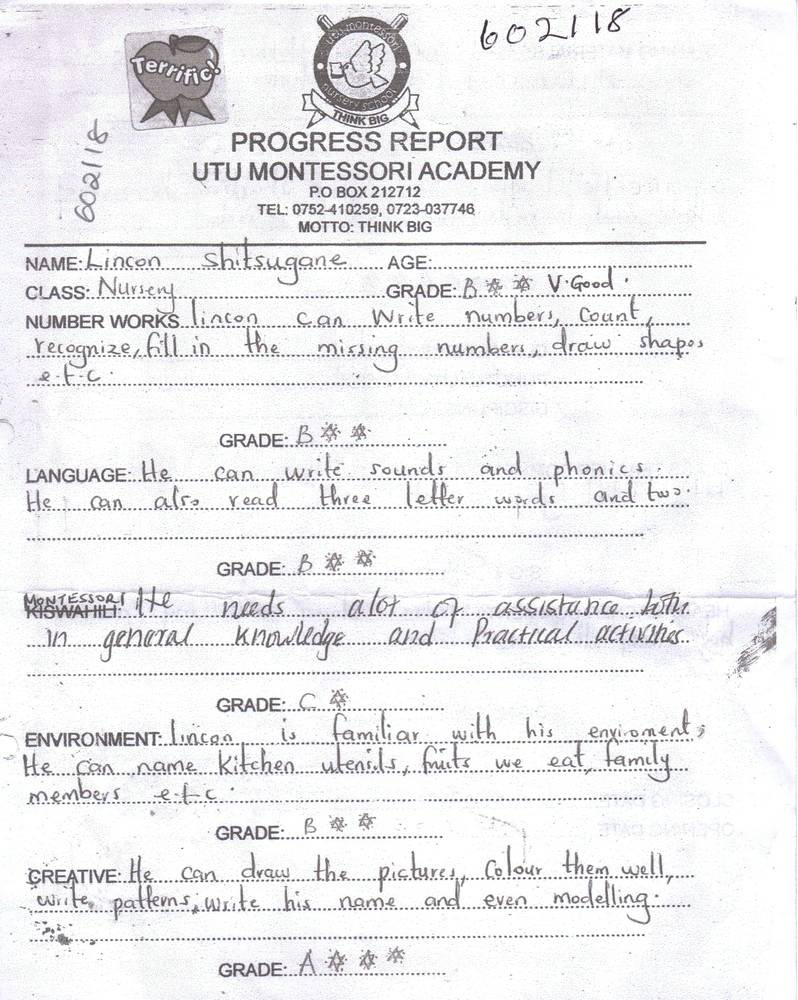 602118
Terrific!
utu montessori
nursery school
THINK BIG
602118
PROGRESS REPORT
UTU MONTESSORI ACADEMY
P.O BOX 212712
TEL: 0752-410259, 0723-037746
MOTTO: THINK BIG
NAME: Lincon Shitsugane AGE:
CLASS: Nursery GRADE: B ** V.Good.
NUMBER WORKS lincon can Write numbers, Count,
recognize, fill in the missing numbers, draw shapes
e.t.c.
GRADE: B **
LANGUAGE: He can write sounds and phonics.
He can also read three letter words and two.
GRADE: B **
MONTESSORI KISWAHILI: He needs alot of assistance both
in general knowledge and Practical activities.
GRADE: C *
ENVIRONMENT: lincon is familiar with his enviroment;
He can name Kitchen utensils, fruits we eat, family
members e.t.c.
GRADE: B **
CREATIVE: He can draw the pictures, Colour them well,
write patterns, write his name and even modelling.
GRADE: A ***